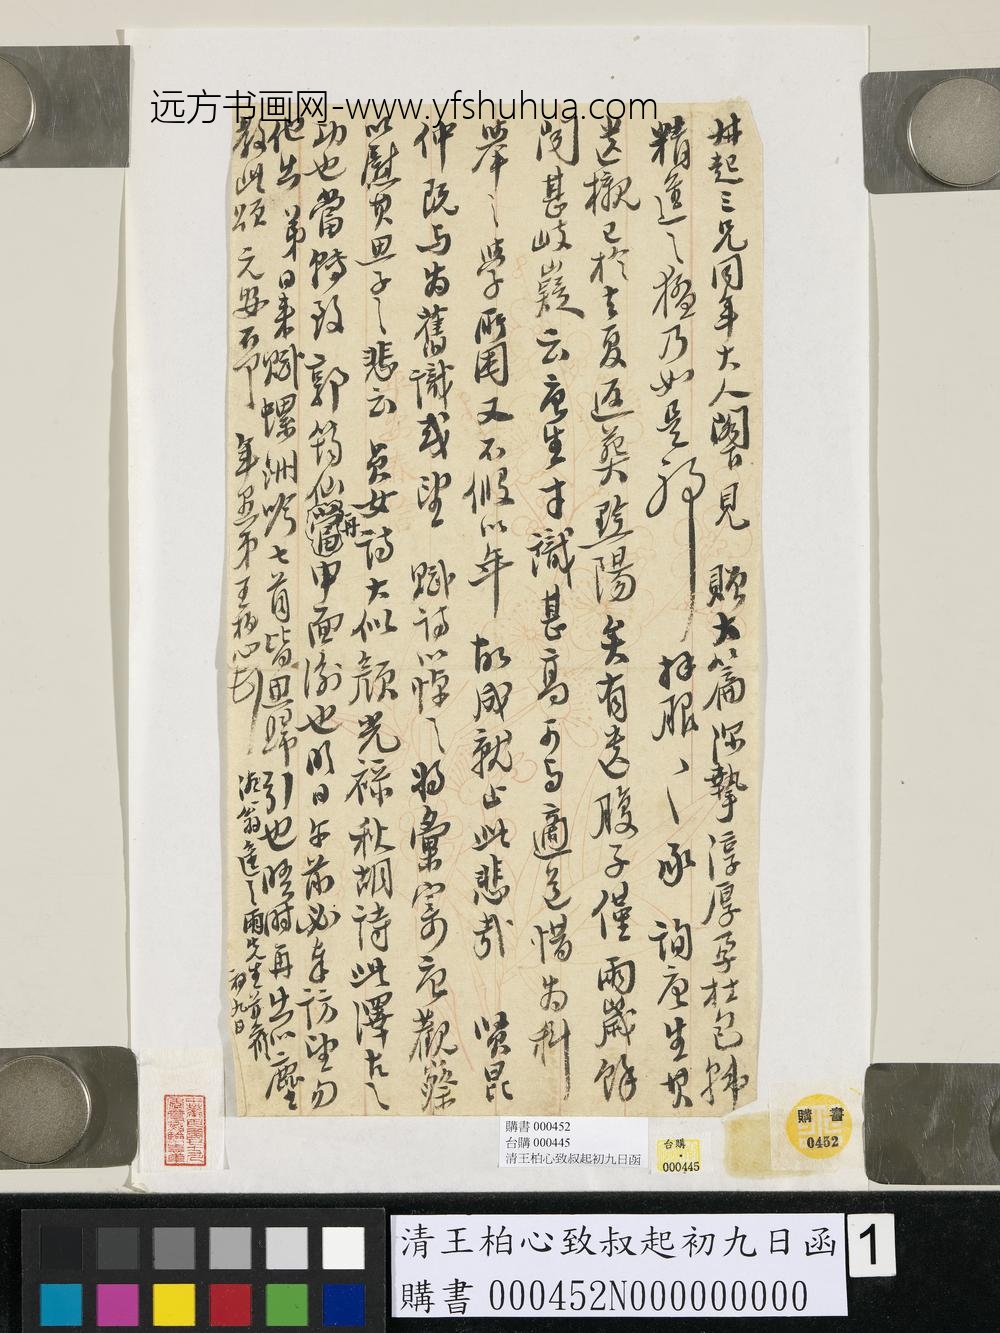 远方书画网-www.yfshuhua.com
叔起三兄同年大人閣下見贈大篇深摯淳厚孕杜包韓
精進之極乃如是耶拜服〻〻承詢唐生
遺櫬已於去夏返葬黔陽矣有遺腹子僅兩歲餘
聞甚岐嶷云唐生才識甚高可与適道惜為科
舉之學所困又不假以年故成就止此悲哉賢昆
仲既与為舊識或望賦詩以悼之將彙寄唐觀察
以慰其思子之悲云貞女詩大似顏光祿秋胡詩此澤古之
功也當轉致郭筠仙當再申面謝也明日午前必奉訪望勿
他出弟日來賦螺洲吟七首皆思歸引也晤時再出以塵
教此頌元安不即年愚弟王柏心頓
湘翁先生前
初九日
購書 000452
台購 000445
清王柏心致叔起初九日函
台購
000445
購書
0452
清王柏心致叔起初九日函
購書 000452N000000000
1